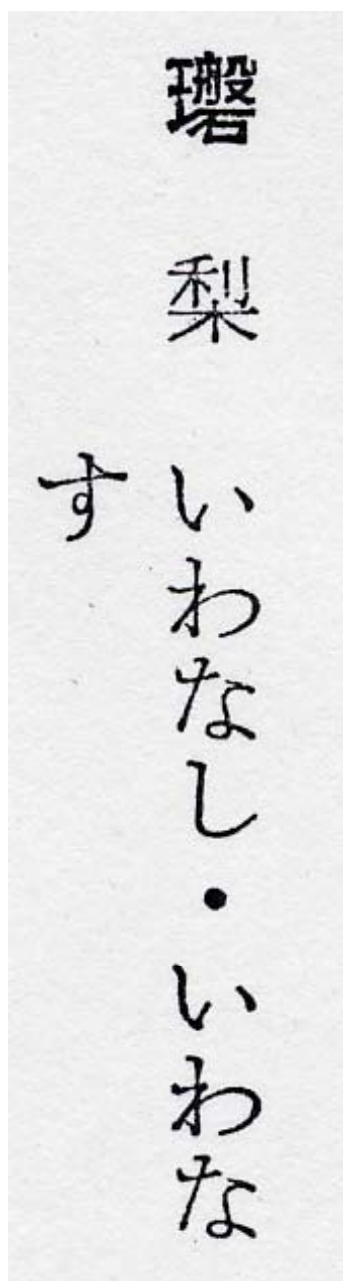 梨 いわなし・いわな
す